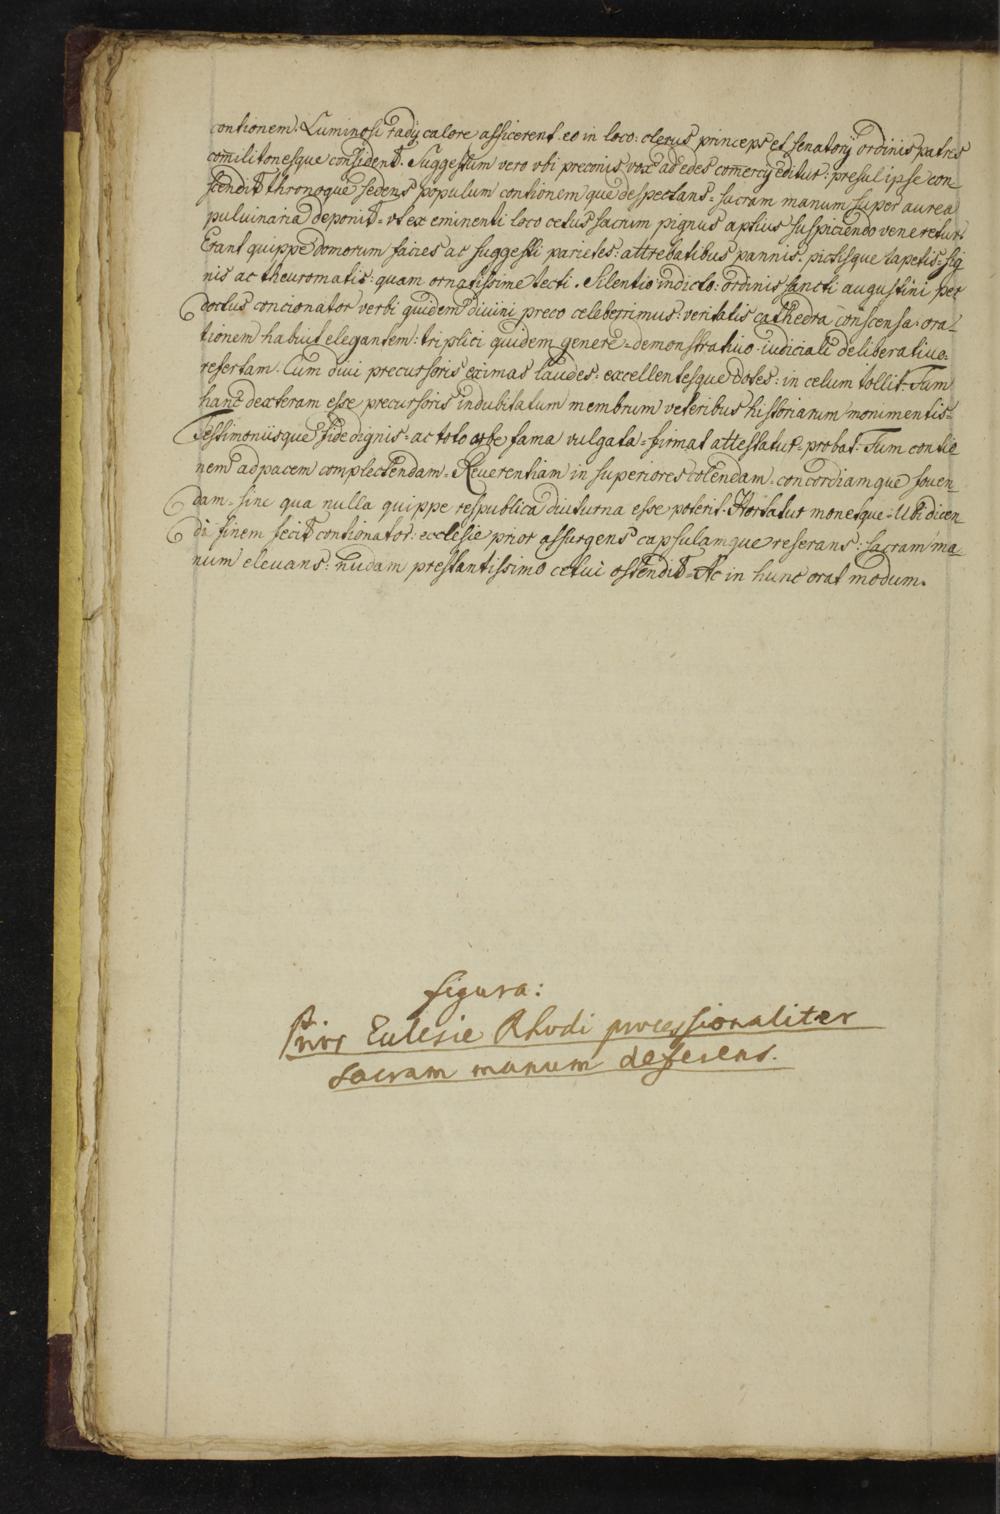 contionem. Luminosi radij calore afficerent. eo in loco: clerus princeps et senatorij ordinis patres
comilitonesque consident. Suggestum vero vbi preconis vox ad edes comercij editur: presul ipse con-
scendit thronoque sedens populum contionem que despectans = sacram manum super aurea
puluinaria deponit = vt ex eminenti loco cetus sacrum pignus aptius suspiciendo veneretur.
Erant quippe domorum facies ac suggesti parietes: attrebatibus pannis. pictisque tapetis: sig
nis ac theuromatis: quam ornatissime tecti. Silentio indicto: ordinis sancti augustini per
doctus concionator verbi quidem diuini preco celeberrimus: veritatis cathedra conscensa. ora-
tionem habuit elegantem: triplici quidem genere = demonstratiuo. iudiciali deliberatiuo.
refertam. Cum diui precursoris eximas laudes: excellentesque dotes: in celum tollit. Tum
hanc dexteram esse precursoris indubitatum membrum veteribus historiarum monimentis =
Testimoniisque fide dignis = ac toto orbe fama vulgata = firmat attestatur = probat. Tum contio
nem ad pacem complectendam = Reuerentiam in superiores colendam = concordiamque fouen
dam = sine qua nulla quippe respublica diuturna esse poterit. Hortatur monetque = Ubi dicen
di finem fecit contionator: ecclesie prior assurgens capsulamque reserans: sacram ma
num eleuans: nudam prestantissimo cetui ostendit = Ac in hunc orat modum.
figura:
Prior Eclesie Rhodi processionaliter
sacram manum deferens.